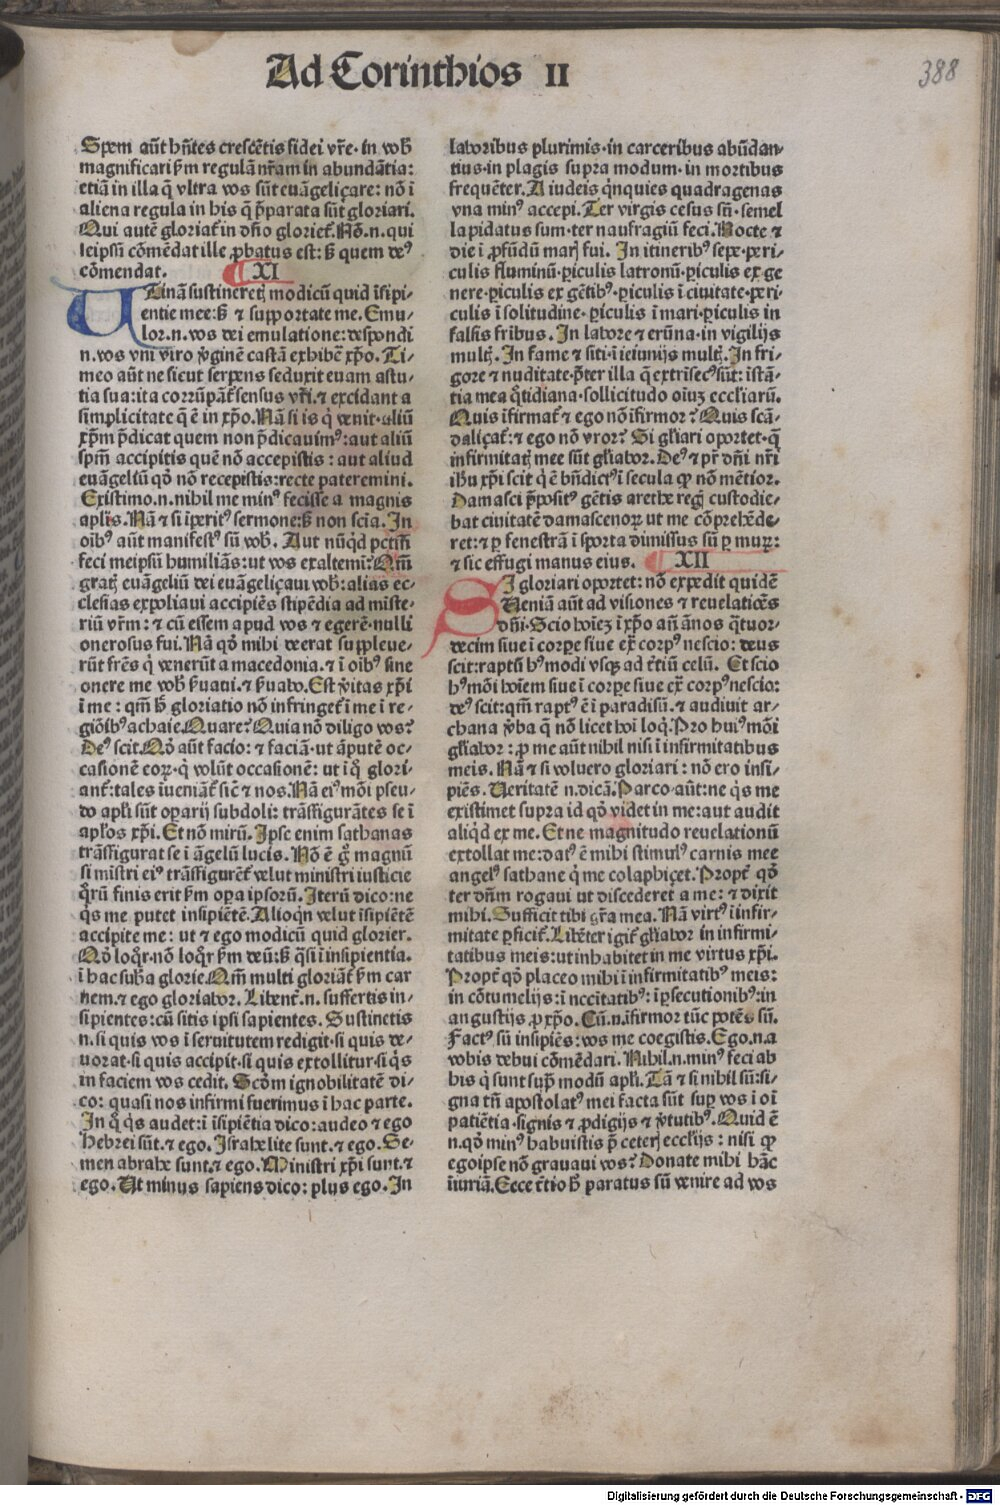 Ad Corinthios II
388
Spem aūt hn̄tes crescētis fidei vr̄e · in vob̄
magnificari ẜm regulā nr̄am in abundātia:
etiā in illa q̄ vltra vos sūt euāgeliçare: nō ī
aliena regula in his q̄ p̄parata sūt gloriari.
Qui autē gloriat̄ in dn̄o gloriet̄. Nō .n. qui
seipsū cōmendat ille ꝓbatus est: ẜ quem deꝰ
cōmendat. XI
UTinā sustineretꝭ modicū quid īsipi-
entie mee: ẜ ⁊ supportate me. Emu-
lor .n. vos dei emulatione: despondi
.n. vos vni viro v̄ginē castā exhibē xp̄o. Ti-
meo aūt ne sicut serpens seduxit euam astu-
tia sua: ita corrūpāt̄ sensus vr̄i. ⁊ excidant a
simplicitate q̄ ē in xp̄o. Nā si is qͥ venit · aliū
xp̄m p̄dicat quem non p̄dicauimꝰ: aut aliū
sp̄m accipitis quē nō accepistis: aut aliud
euāgeliū qd̄ nō recepistis: recte pateremini.
Existimo .n. nihil me minꝰ fecisse a magnis
apl̄is. Nā ⁊ si īperitꝰ sermone: ẜ non scīa. In
oībꝰ aūt manifestꝰ sū vob̄. Aut nūqd̄ pctm̄
feci meipsū humiliās: ut vos exaltemī? Qm̄
gratꝭ euāgeliū dei euāgeliçaui vob̄: alias ec-
clesias expoliaui accipiēs stipēdia ad mīste-
riū vr̄m: ⁊ cū essem apud vos ⁊ egerē · nulli
onerosus fui. Nā qd̄ mihi deerat suppleue-
rūt fr̄es qͥ venerūt a macedonia. ⁊ ī oībꝰ sine
onere me vob̄ ẜuaui. ⁊ ẜuabo. Est v̄itas xp̄i
ī me: qm̄ h̄ gloriatio nō infringet̄ ī me ī re-
giōībꝰ achaie. Quare? Quia nō diligo vos?
Deꝰ scit. Qd̄ aūt facio: ⁊ faciā · ut āputē oc-
casionē eoꝝ · qͥ volūt occasionē: ut ī qͦ glori-
ant̄: tales īueniāt̄ sic̄ ⁊ nos. Nā eiꝰmōi pseu-
do apl̄i sūt oꝑarij subdoli: trāsfigurātes se ī
apl̄os xp̄i. Et nō mirū. Ipse enim sathanas
trāsfigurat se ī āgelū lucis. Nō ē gͦ magnū
si mīstri eiꝰ trāsfigurēt̄ velut ministri iusticie
qͦrū finis erit ẜm oꝑa ipsorū. Iterū dico: ne
qͥs me putet insipiētē. Alioqn̄ velut īsipiētē
accipite me: ut ⁊ ego modicū quid glorier.
Qd̄ loqͦr · nō loqͦr ẜm deū: ẜ qͣsi ī insipientia.
ī hac sub̄a glorie. Qm̄ multi gloriāt̄ ẜm car
nem. ⁊ ego gloriabor. Libent̄ .n. suffertis in-
sipientes: cū sitis ipsi sapientes. Sustinetis
.n. si quis vos ī seruitutem redigit · si quis de-
uorat · si quis accipit · si quis extollitur · si qͥs
in faciem vos cedit. Scd̄m ignobilitatē di-
co: quasi nos infirmi fuerimus ī hac parte.
In qͦ qͥs audet: ī īsipiētia dico: audeo ⁊ ego
Hebrei sūt. ⁊ ego. Israhelite sunt. ⁊ ego. Se-
men abrahe sunt. ⁊ ego. Ministri xp̄i sunt. ⁊
ego. Ut minus sapiens dico: plus ego. In
laboribus plurimis · in carceribus abūdan-
tius · in plagis supra modum · in mortibus
frequēter. A iudeis qͥnquies quadragenas
vna minꝰ accepi. Ter virgis cesus sū · semel
lapidatus sum · ter naufragiū feci. Nocte ⁊
die ī ꝓfūdū marꝭ fui. In itineribꝰ sepe · peri-
culis fluminū · ꝑiculis latronū · ꝑiculis ex ge
nere · ꝑiculis ex gētibꝰ · ꝑiculis ī ciuitate · peri-
culis ī solitudine · ꝑiculis ī mari · ꝑiculis in
falsis fribus. In labore ⁊ erūna · in vigilijs
multꝭ. In fame ⁊ siti · ī ieiunijs multꝭ. In fri-
gore ⁊ nuditate · p̄ter illa q̄ extrīsecꝰ sūt: īstā-
tia mea qͦtidiana · sollicitudo oīuꝫ eccl̄iarū.
Quis īfirmat̄ ⁊ ego nō īfirmor? Quis scā-
daliçat̄: ⁊ ego nō vror? Si gl̄iari oportet · q̄
infirmitatꝭ mee sūt gl̄iabor. Deꝰ ⁊ pr̄ dn̄i nr̄i
ih̄u xp̄i scit qͥ ē bn̄dictꝰ ī secula ꝙ nō mētior.
Damasci p̄positꝰ gētis arethe regꝭ custodie-
bat ciuitatē damascenoꝝ ut me cōprehēde-
ret: ⁊ ꝑ fenestrā ī sporta dimissus sū ꝑ muꝝ:
⁊ sic effugi manus eius. XII
SI gloriari oportet: nō expedit quidē
Ueniā aūt ad visiones ⁊ reuelatiōes
dn̄i. Scio hoīeꝫ ī xp̄o an̄ ānos qͣtuor-
decim siue ī corpe siue ex̄ corpꝰ nescio: deus
scit: raptū hꝰmodi vsqꝫ ad t̄tiū celū. Et scio
hꝰmōi hoīem siue ī corpe siue ex̄ corpꝰ nescio:
deꝰ scit: qm̄ raptꝰ ē ī paradisū. ⁊ audiuit ar-
chana v̄ba q̄ nō licet hoī loqͥ. Pro huiꝰmōi
gl̄iabor: ꝓ me aūt nihil nisi ī infirmitatibus
meis. Nā ⁊ si voluero gloriari: nō ero insi-
piēs. Ueritatē .n. dicā. Parco aūt: ne qͥs me
existimet supra id qd̄ videt in me: aut audit
aliqͥd ex me. Et ne magnitudo reuelationū
extollat me: datꝰ ē mihi stimulꝰ carnis mee
angelꝰ sathane qͥ me colaphiçet. Propt̄ qd̄
ter dn̄m rogaui ut discederet a me: ⁊ dixit
mihi. Sufficit tibi gr̄a mea. Nā virtꝰ ī infir-
mitate ꝑficit̄. Libēter igit̄ gl̄iabor in infirmi-
tatibus meis: ut inhabitet in me virtus xp̄i.
Propt̄ qd̄ placeo mihi ī infirmitatibꝰ meis:
in cōtumelijs: ī nccītatibꝰ: ī ꝑsecutionibꝰ: in
angustijs ꝓ xp̄o. Cū .n. īfirmor tūc potēs sū.
Factꝰ sū insipiēs: vos me coegistis. Ego .n. a
vobis debui cōmēdari. Nihil .n. minꝰ feci ab
his qͥ sunt sup̄ modū apl̄i. Tā ⁊ si nihil sū: si-
gna tn̄ apostolatꝰ mei facta sūt suꝑ vos ī oī
patiētia · signis ⁊ ꝓdigijs ⁊ v̄tutibꝰ. Quid ē
.n. qd̄ minꝰ habuistis p̄ ceterꝭ eccl̄ijs: nisi ꝙ
ego ipse nō grauaui vos? Donate mihi hāc
īiuriā. Ecce t̄tio h̄ paratus sū venire ad vos
Digitalisierung gefördert durch die Deutsche Forschungsgemeinschaft - DFG